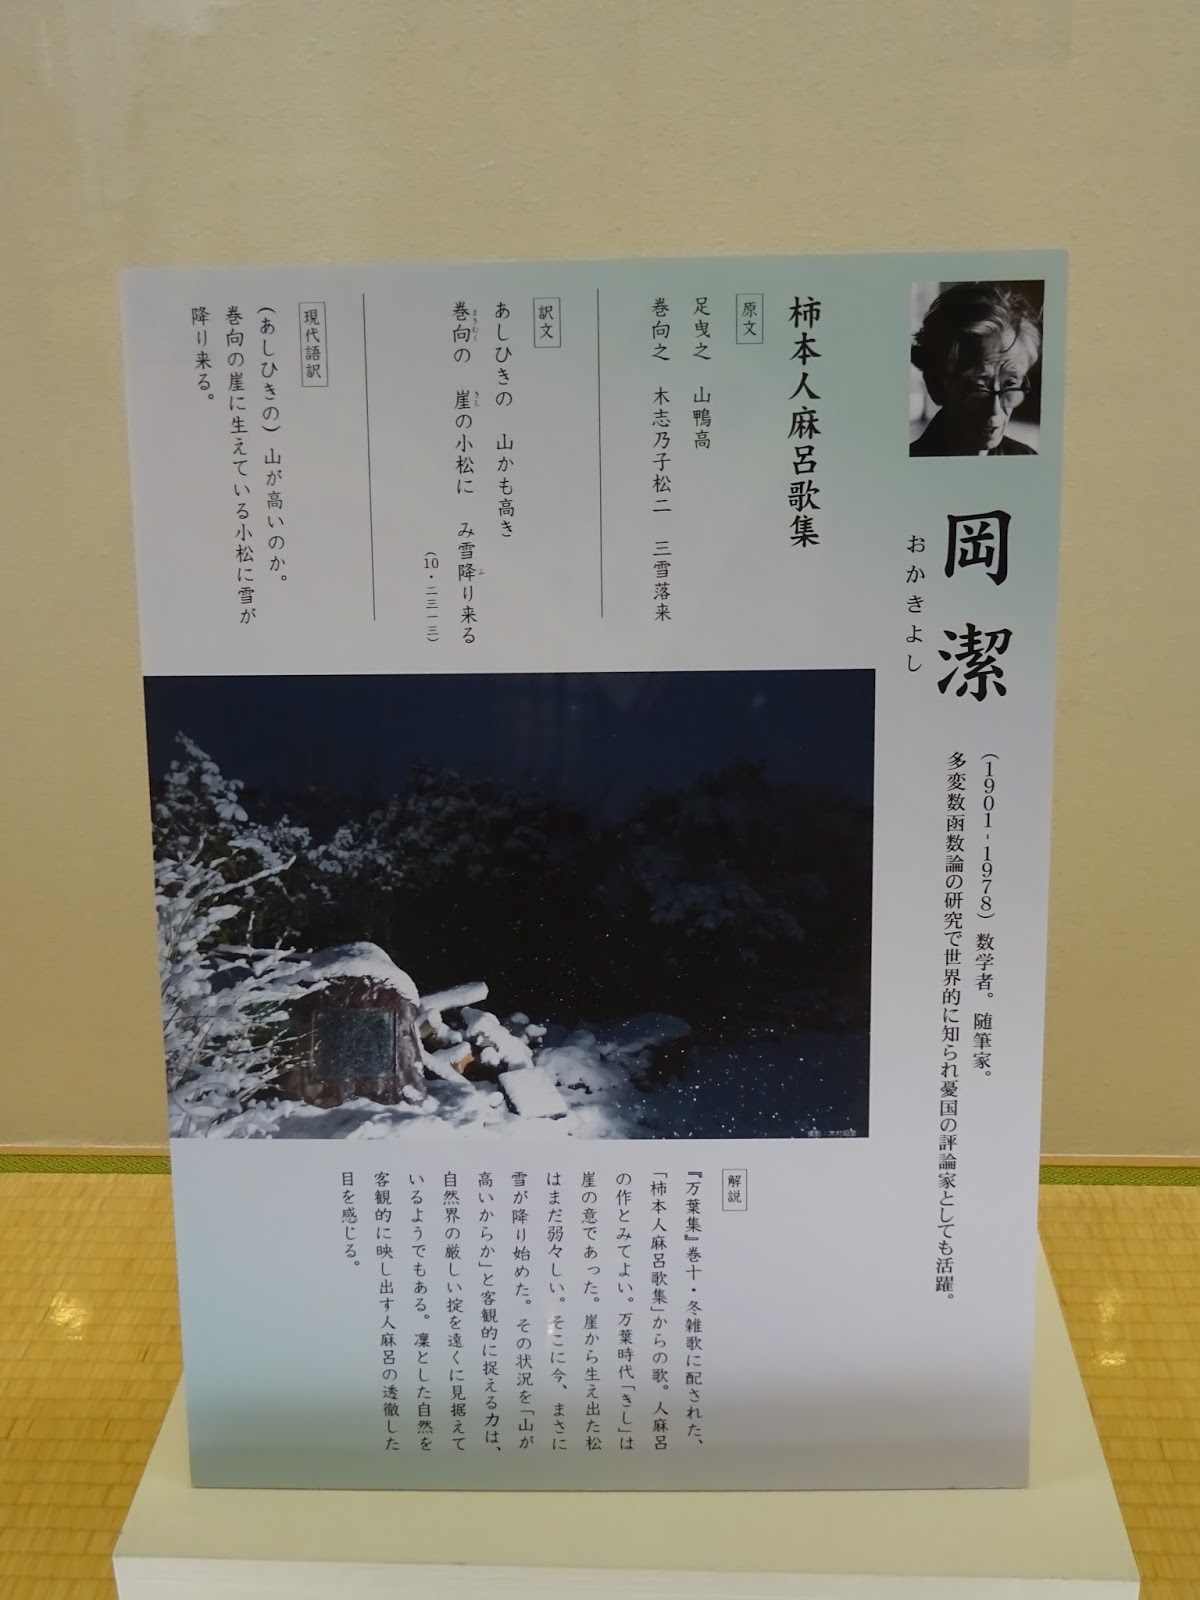 岡潔
おかきよし
(1901-1978)数学者。随筆家。
多変数函数論の研究で世界的に知られ憂国の評論家としても活躍。
柿本人麻呂歌集
原文
足曳之 山鴨高
巻向之 木志乃子松二 三雪落来
訳文
あしひきの 山かも高き
巻向の 崖の小松に み雪降り来る
まきむく
きし
ふ
(10・二三一三)
現代語訳
(あしひきの)山が高いのか。
巻向の崖に生えている小松に雪が
降り来る。
解説
『万葉集』巻十・冬雑歌に配された、
「柿本人麻呂歌集」からの歌。人麻呂
の作とみてよい。万葉時代「きし」は
崖の意であった。崖から生え出た松
はまだ弱々しい。そこに今、まさに
雪が降り始めた。その状況を「山が
高いからか」と客観的に捉える力は、
自然界の厳しい掟を遠くに見据えて
いるようでもある。凜とした自然を
客観的に映し出す人麻呂の透徹した
目を感じる。